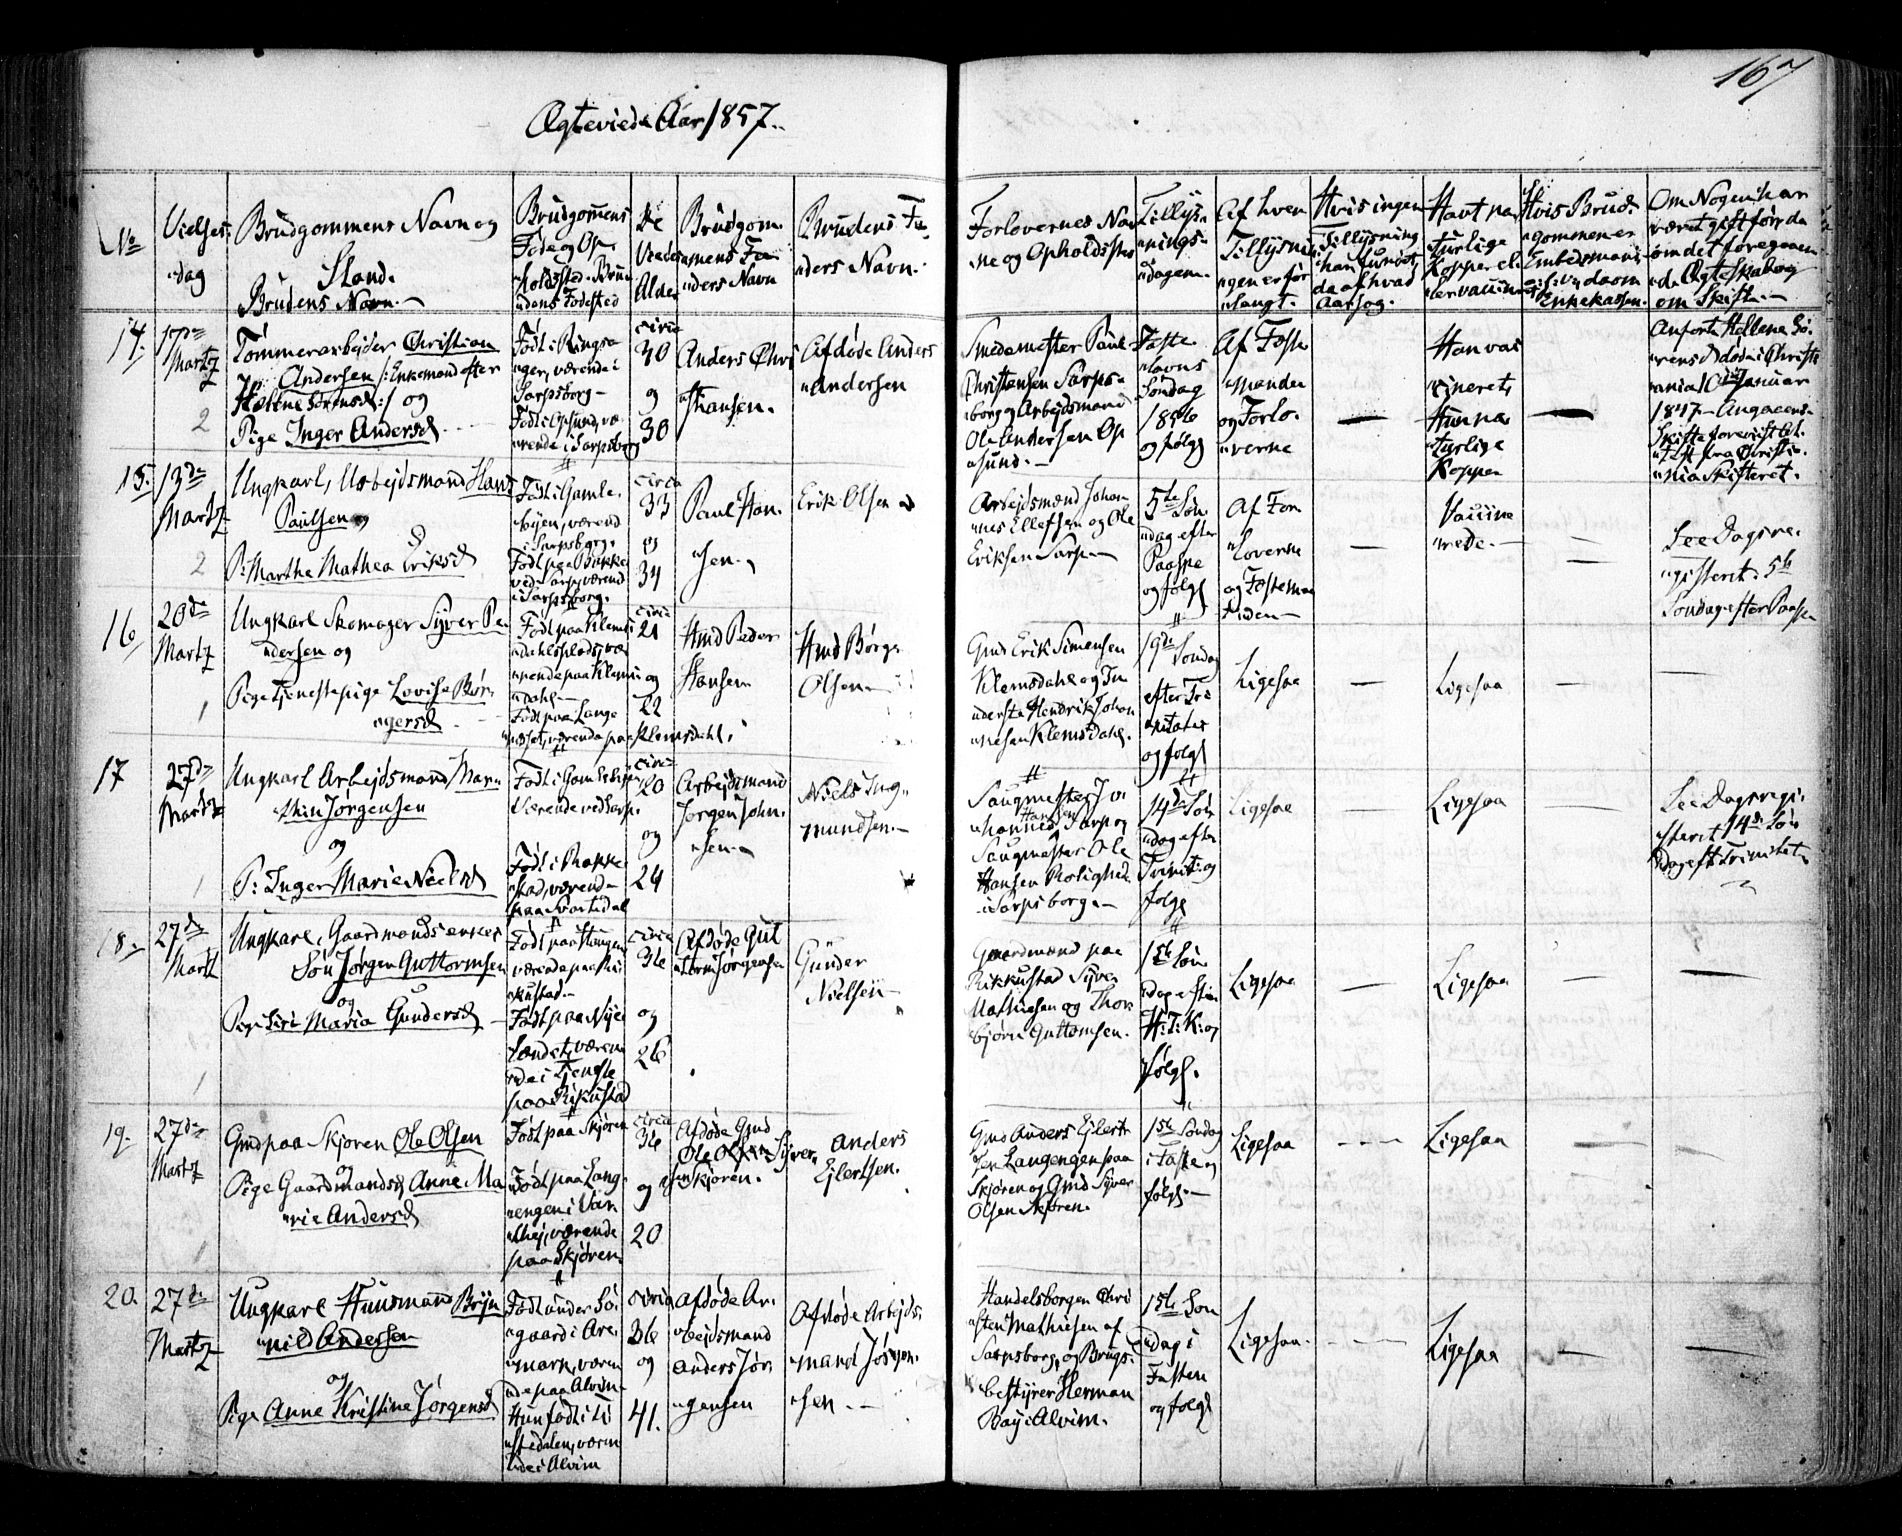 167
Ægteviede Aar 1857.
No
Vielses
dag
Brudgommens Navn og
Stand.
Brudens Navn.
Brudgommens
Føde og Op
holdssted. Bru
dens Fødested
De
Viedes
Alder
Brudgom
mens Fa
ders Navn
Brudens Fa
ders Navn.
Forlovernes Nav
ne og Opholdssted
Tillys
nings
dagen.
Af hvem
Tillysnin
gen er for
langt.
Hvis ingen
Tillysning
har fundet
Havt na
turlige
Kopper el
ler vaccineret
Hvis Brud
gommen er
Embedsmand
Enkekassen.
Om Nogen har
været gift før da
om det foregaaen
de Ægteskab og
om Skifte.
14.
17de
Martz
2
Tømmerarbejder Christian
Andersen /: Enkemand efter
Helene Sørensd :/ og
Pige Inger Andersd
Født i Ringsa
ger, værende i
Sarpsborg
Født i Opsund, væ
rende i Sarpsborg
circa
30
og
30
Anders Chri
sthansen.
Afdøde Anders
Andersen
Smedemester Paul
Christensen Sarps
borg og Arbejdsmand
Ole Andersen Op
sund.
Faste
lavns
Søndag
1856
og følg
Af Faste
Mander
og Forlo
verne
Han vac
cineret,
Hun na
turlige
Kopper
Anførte Hellene Sø
rensd døde i Christi
ania 10de Januar
1847
15.
13de
Martz
2
Ungkarl, Arbejdsmand Hans
Paulsen og
P. Marthe Mathea Eriksd
Født i Gamle
byen, værend
i Sarpsborg.
Født paa Bakke
ved Sarp, værend
i Sarpsborg.
circa
33
og
34
Paul Han
sen.
Erik Olsen
Arbejdsmand Johan
nes Ellefsen og Ole
Eriksen Sarp
5te Søn
dag efter
Paaske
og følg
Af For
loverne
og Fastema
Vaccine
rede.
See Dagsre
gisteret 5te
Søndag efter Paaske
16
20de
Martz
1
Ungkarl Skomager Syver Pe
dersen og
Pige tjenestepige Lovise Bør
gersd
Født paa Klems
dahlsplads, væ
rende paa Klems
dahl
Født paa Lange
næset, værende paa Klemsdahl.
circa
21
og
22
Hmd Peder
Hansen
Hmd Børge
Olsen
Gmd Erik Simensen
Klemsdahl og In
derste Hendrik Johan
nesen Klemsdahl.
19de Søndag
efter Tri
nitatis
og følg
Ligesaa
Ligesaa
17
27de
Martz
1
Ungkarl Arbejdsmand Mar
thin Jørgensen
og
P: Inger Marie Nielsd
Født i Gamlebyen
Værende ved Sarp.
Født i Rakke
stad, værend
paa Svartedal
circa
20
og
24
Arbejdsmand
Jørgen John
sen
Niels Ing
mundsen.
Saugmester Jo
hannes Hansen Sarp og
Saugmester Ole
Hansen Rolighed
i Sarpsborg.
14de Søn
dag efter
Trinit: og
følg
Ligesaa
Ligesaa
See Dagsregi
steret 14de Søn
dag eft Trinitat
18.
27de
Martz
1
Ungkarl, Gaardmands enkes
Søn Jørgen Guttormsen
og
Pige Siri Maria Gundersd
Født paa Haugen
værende paa Rik
kustad
Født paa Nye
landet, væren
de i Tjeneste
paa Rikustad
circa
36
og
26
Afdøde Gut
torm Jørgensen
Gunder
Nielsen
Gaardmand paa
Rikkustad Syver
Mathiesen og Thor
bjørn Guttormsen.
1ste Søn
dag efter
H:3:K: og
følg.
Ligesaa
Ligesaa
19.
27de
Martz
1
Gmd paa Skjøren Ole Olsen
og
Pige Gaardmandsd Anne Ma
rie Andersd
Født paa Skjøren
Født paa Lang
engen i Var
thej, værende
paa Skjøren
circa
36
og
20
Afdøde Gmd
Ole Olsen Syver
sen Skjøren.
Anders
Ejlertsen.
Gmd Anders Ejlert
sen Langengen paa
Skjøren og Gmd Syver
Olsen Skjøren.
1ste Søndag
i Faste og
følg.
Ligesaa
Ligesaa
20.
27de
Martz
Ungkarl Huusmand Bryn
nild Andersen
og
Pige Anne Kristine Jørgensd
Født under Sø
gaard i Are
mark, væren
de paa Alvim
Hun født i Ti
stedalen, væren
de i Alvim
circa
36
og
41.
Afdøde Ar
bejdsmand
Anders Jør
gensen
Afdøde Arbejds
mand Jørgen
sen.
Handelsborger Chri
sten Mathiesen af
Sarpsborg, og Brugs
bestyrer Herman
Bay i Alvim.
1ste Søn
dag i
Fasten
og følg
Ligesaa.
Ligesaa